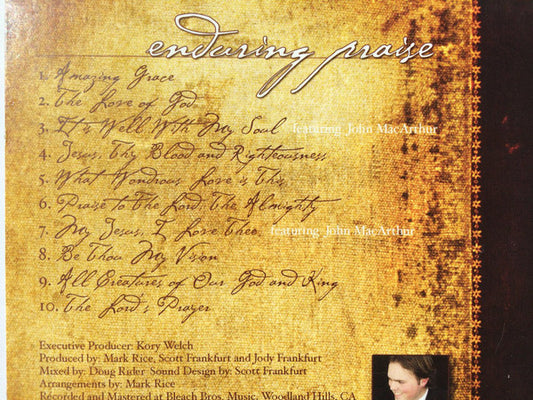 enduring praise
1. Amazing Grace
2. The Love of God
3. It Is Well With My Soul featuring John MacArthur
4. Jesus, Thy Blood and Righteousness
5. What Wondrous Love is This
6. Praise to the Lord, The Almighty
7. My Jesus, I Love Thee featuring John MacArthur
8. Be Thou My Vision
9. All Creatures of Our God and King
10. The Lord's Prayer
Executive Producer: Kory Welch
Produced by: Mark Rice, Scott Frankfurt and Jody Frankfurt
Mixed by: Doug Rider Sound Design by: Scott Frankfurt
Arrangements by: Mark Rice
Recorded and Mastered at Bleach Bros. Music, Woodland Hills, CA